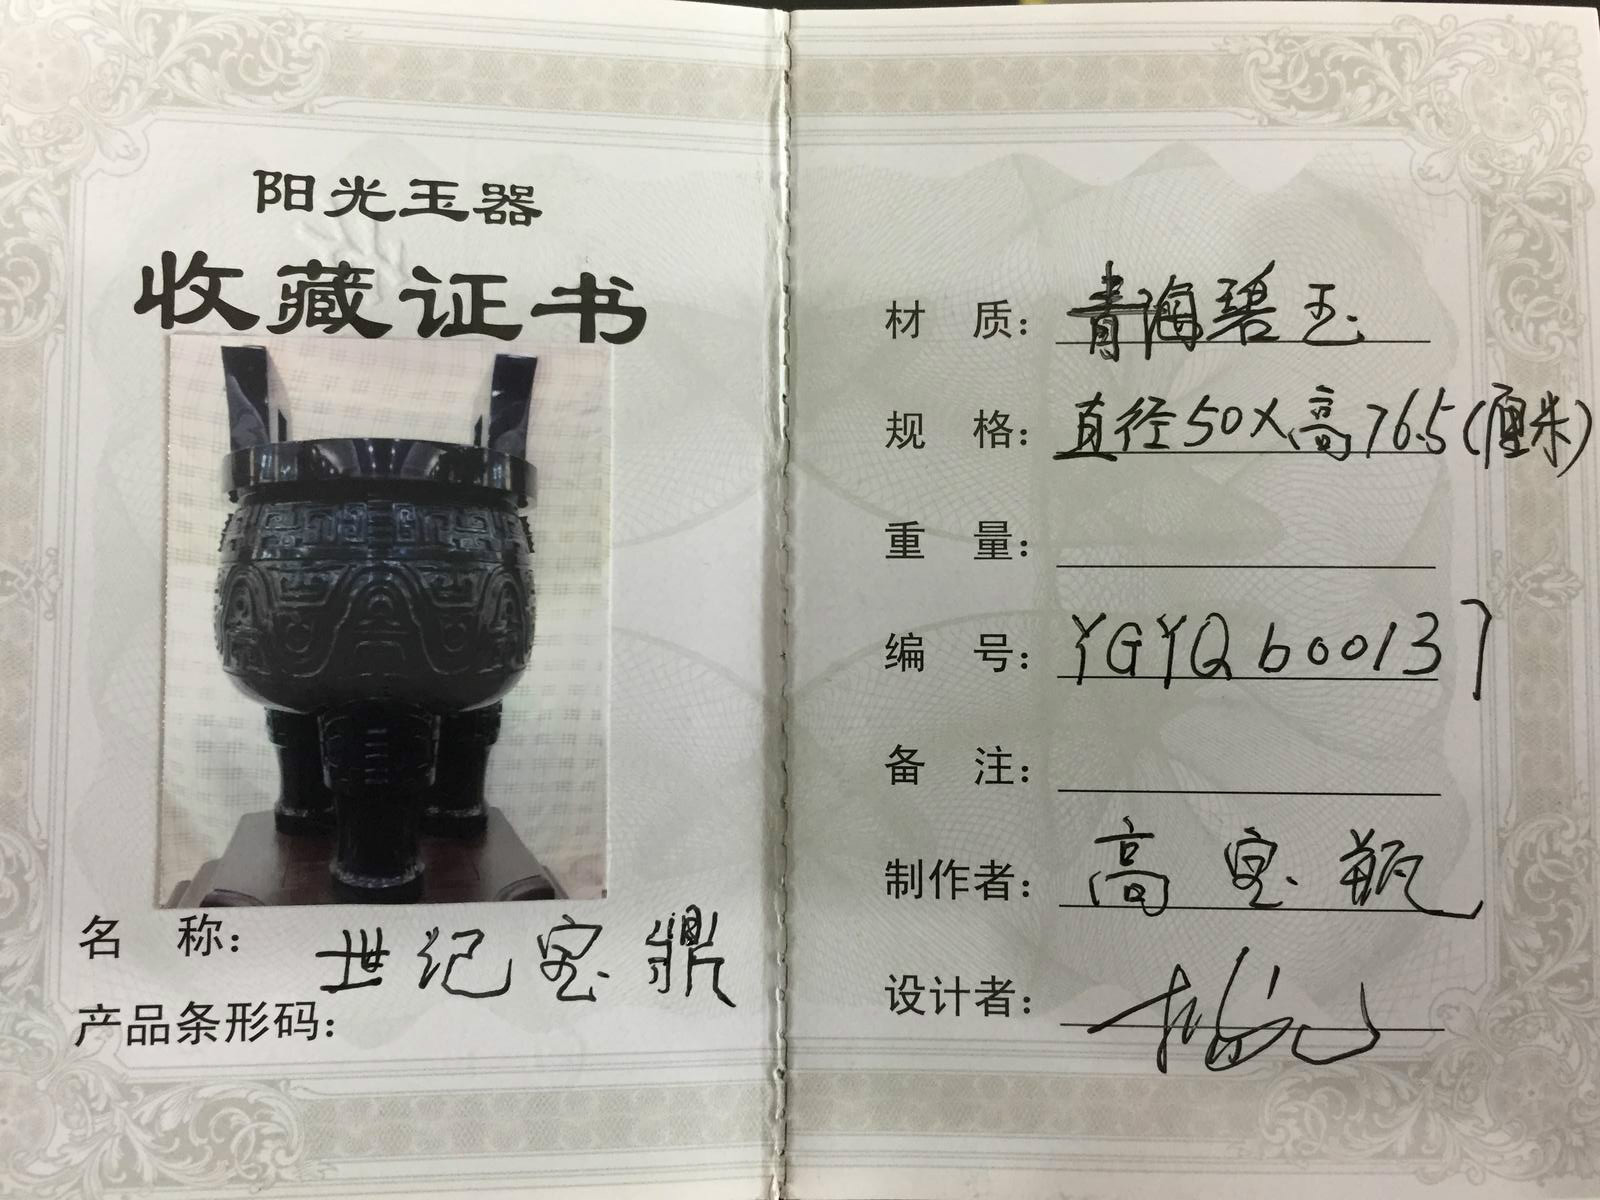 阳光玉器
收藏证书
名 称：世纪宝鼎
产品条形码：
材 质：青海碧玉
规 格：直径50×高76.5(厘米)
重 量：
编 号：YGYQb00137
备 注：
制作者：高宝瓶
设计者：